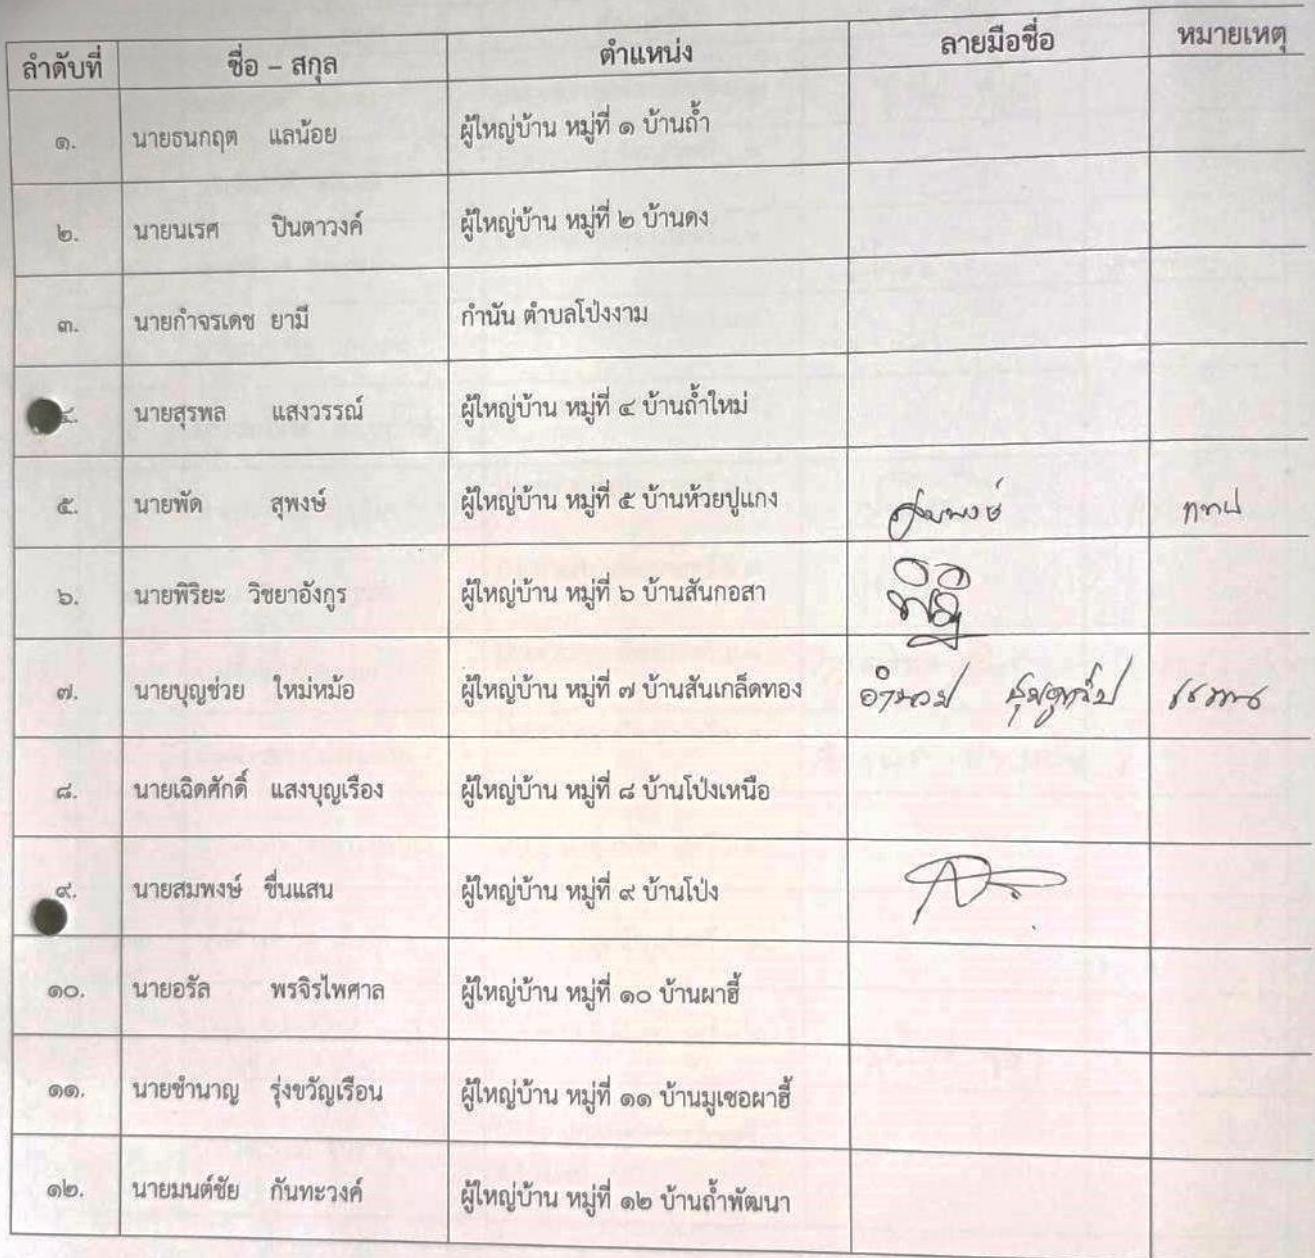 ลำดับที่ ชื่อ – สกุล ตำแหน่ง ลายมือชื่อ หมายเหตุ
๑. นายธนกฤต แลน้อย ผู้ใหญ่บ้าน หมู่ที่ ๑ บ้านถ้ำ
๒. นายนเรศ ปินตาวงค์ ผู้ใหญ่บ้าน หมู่ที่ ๒ บ้านดง
๓. นายกำจรเดช ยามี กำนัน ตำบลโป่งงาม
๔. นายสุรพล แสงวรรณ์ ผู้ใหญ่บ้าน หมู่ที่ ๔ บ้านถ้ำใหม่
๕. นายพัด สุพงษ์ ผู้ใหญ่บ้าน หมู่ที่ ๕ บ้านห้วยปูแกง
๖. นายพิริยะ วิชยาอังกูร ผู้ใหญ่บ้าน หมู่ที่ ๖ บ้านสันกอสา
๗. นายบุญช่วย ใหม่หม้อ ผู้ใหญ่บ้าน หมู่ที่ ๗ บ้านสันเกล็ดทอง
๘. นายเฉิดศักดิ์ แสงบุญเรือง ผู้ใหญ่บ้าน หมู่ที่ ๘ บ้านโป่งเหนือ
๙. นายสมพงษ์ ชื่นแสน ผู้ใหญ่บ้าน หมู่ที่ ๙ บ้านโป่ง
๑๐. นายอรัล พรจิรไพศาล ผู้ใหญ่บ้าน หมู่ที่ ๑๐ บ้านผาฮี้
๑๑. นายชำนาญ รุ่งขวัญเรือน ผู้ใหญ่บ้าน หมู่ที่ ๑๑ บ้านมูเซอผาฮี้
๑๒. นายมนต์ชัย กันทะวงค์ ผู้ใหญ่บ้าน หมู่ที่ ๑๒ บ้านถ้ำพัฒนา